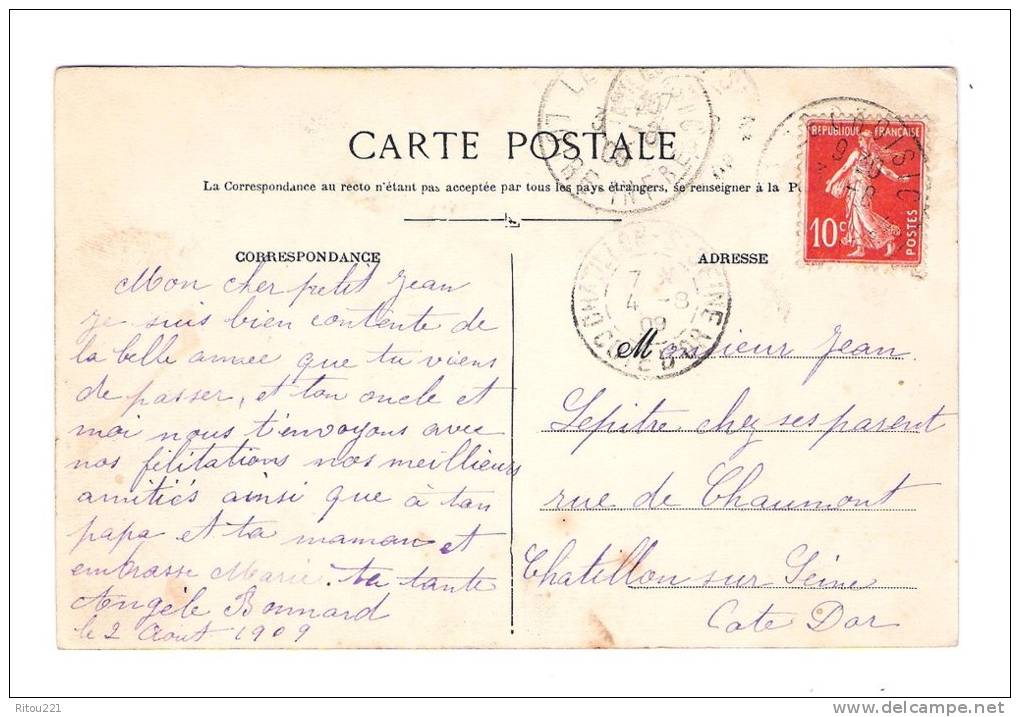 CARTE POSTALE
La Correspondance au recto n'étant pas acceptée par tous les pays étrangers, se renseigner à la
CORRESPONDANCE
Mon cher petit Jean
Je suis bien contente de
la belle année que tu viens
de passer, et ton oncle et
moi nous t'envoyons avec
nos félitations nos meillieurs
amitiés ainsi que à ton
papa et ta maman et
embrasse Marie. ta tante
Angèle Bonnard
le 2 Aout 1909
ADRESSE
Monsieur Jean.
Lepitre chez ses parent
rue de Chaumont
Chatillon sur Seine
Cote Dor
REPUBLIQUE FRANÇAISE
10c
POSTES
LE CROISIC
LOIRE INFRE
CHATILLON-S-SEINE
7
4 -8
09
COTE D'OR
Ritou221
www.delcampe.net